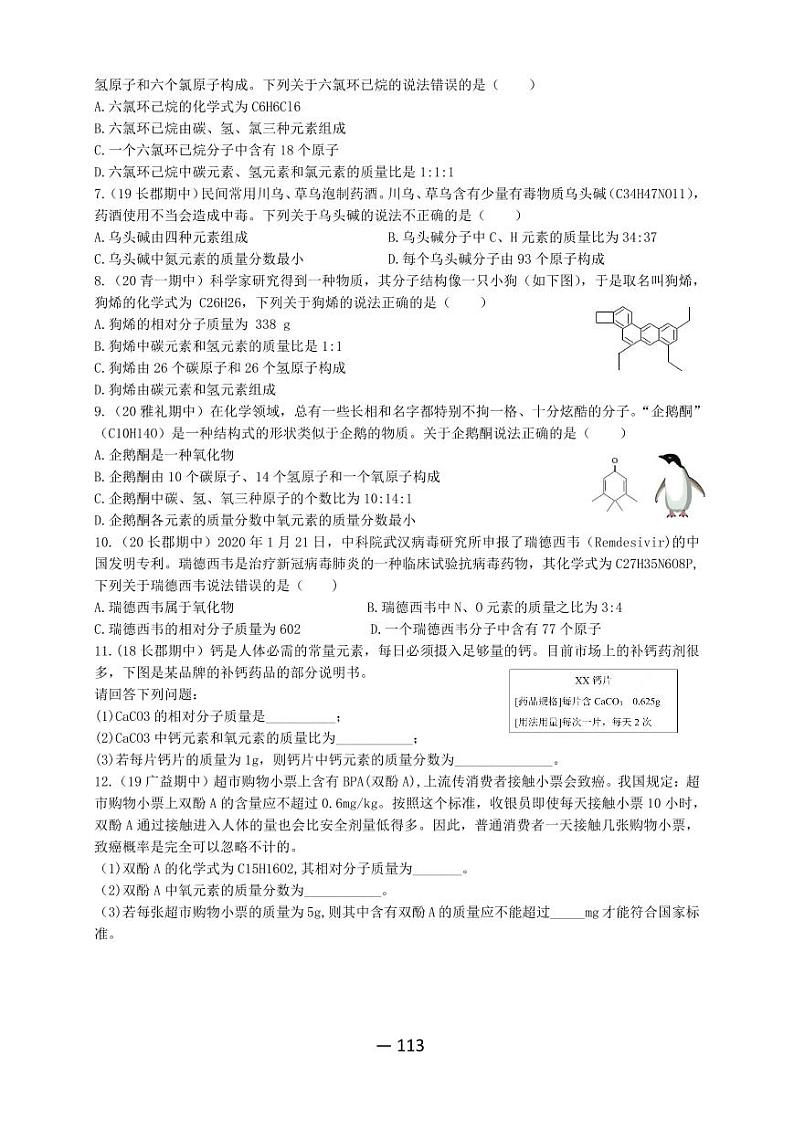 氢原子和六个氯原子构成。下列关于六氯环已烷的说法错误的是（  ）
A.六氯环己烷的化学式为 C6H6Cl6
B.六氯环已烷由碳、氢、氯三种元素组成
C.一个六氯环已烷分子中含有 18 个原子
D.六氯环己烷中碳元素、氢元素和氯元素的质量比是 1:1:1
7.（19 长郡期中）民间常用川乌、草乌泡制药酒。川乌、草乌含有少量有毒物质乌头碱（C34H47NO11），
药酒使用不当会造成中毒。下列关于乌头碱的说法不正确的是（  ）
A.乌头碱由四种元素组成 B.乌头碱分子中 C、H 元素的质量比为 34:37
C.乌头碱中氮元素的质量分数最小 D.每个乌头碱分子由 93 个原子构成
8.（20 青一期中）科学家研究得到一种物质，其分子结构像一只小狗（如下图），于是取名叫狗烯，
狗烯的化学式为 C26H26，下列关于狗烯的说法正确的是（  ）
A.狗烯的相对分子质量为 338 g
B.狗烯中碳元素和氢元素的质量比是 1:1
C.狗烯由 26 个碳原子和 26 个氢原子构成
D.狗烯由碳元素和氢元素组成
9.（20 雅礼期中）在化学领域，总有一些长相和名字都特别不拘一格、十分炫酷的分子。“企鹅酮”
（C10H14O）是一种结构式的形状类似于企鹅的物质。关于企鹅酮说法正确的是（  ）
A.企鹅酮是一种氧化物
B.企鹅酮由 10 个碳原子、14 个氢原子和一个氧原子构成
C.企鹅酮中碳、氢、氧三种原子的个数比为 10:14:1
D.企鹅酮各元素的质量分数中氧元素的质量分数最小
O
10.（20 长郡期中）2020 年 1 月 21 日，中科院武汉病毒研究所申报了瑞德西韦（Remdesivir)的中
国发明专利。瑞德西韦是治疗新冠病毒肺炎的一种临床试验抗病毒药物，其化学式为 C27H35N6O8P,
下列关于瑞德西韦说法错误的是（  )
A.瑞德西韦属于氧化物 B.瑞德西韦中 N、O 元素的质量之比为 3:4
C.瑞德西韦的相对分子质量为 602 D.一个瑞德西韦分子中含有 77 个原子
11.(18 长郡期中）钙是人体必需的常量元素，每日必须摄入足够量的钙。目前市场上的补钙药剂很
多，下图是某品牌的补钙药品的部分说明书。
请回答下列问题：
(1)CaCO3 的相对分子质量是__________；
(2)CaCO3 中钙元素和氧元素的质量比为___________；
(3)若每片钙片的质量为 1g，则钙片中钙元素的质量分数为______________。
XX 钙片
[药品规格]每片含 CaCO3 0.625g
[用法用量]每次一片，每天 2 次
12.（19 广益期中）超市购物小票上含有 BPA(双酚 A),上流传消费者接触小票会致癌。我国规定：超
市购物小票上双酚 A 的含量应不超过 0.6mg/kg。按照这个标准，收银员即使每天接触小票 10 小时，
双酚 A 通过接触进入人体的量也会比安全剂量低得多。因此，普通消费者一天接触几张购物小票，
致癌概率是完全可以忽略不计的。
（1)双酚 A 的化学式为 C15H16O2,其相对分子质量为_______。
（2)双酚 A 中氧元素的质量分数为___________。
（3)若每张超市购物小票的质量为 5g,则其中含有双酚 A 的质量应不能超过_____mg 才能符合国家标
准。
— 113